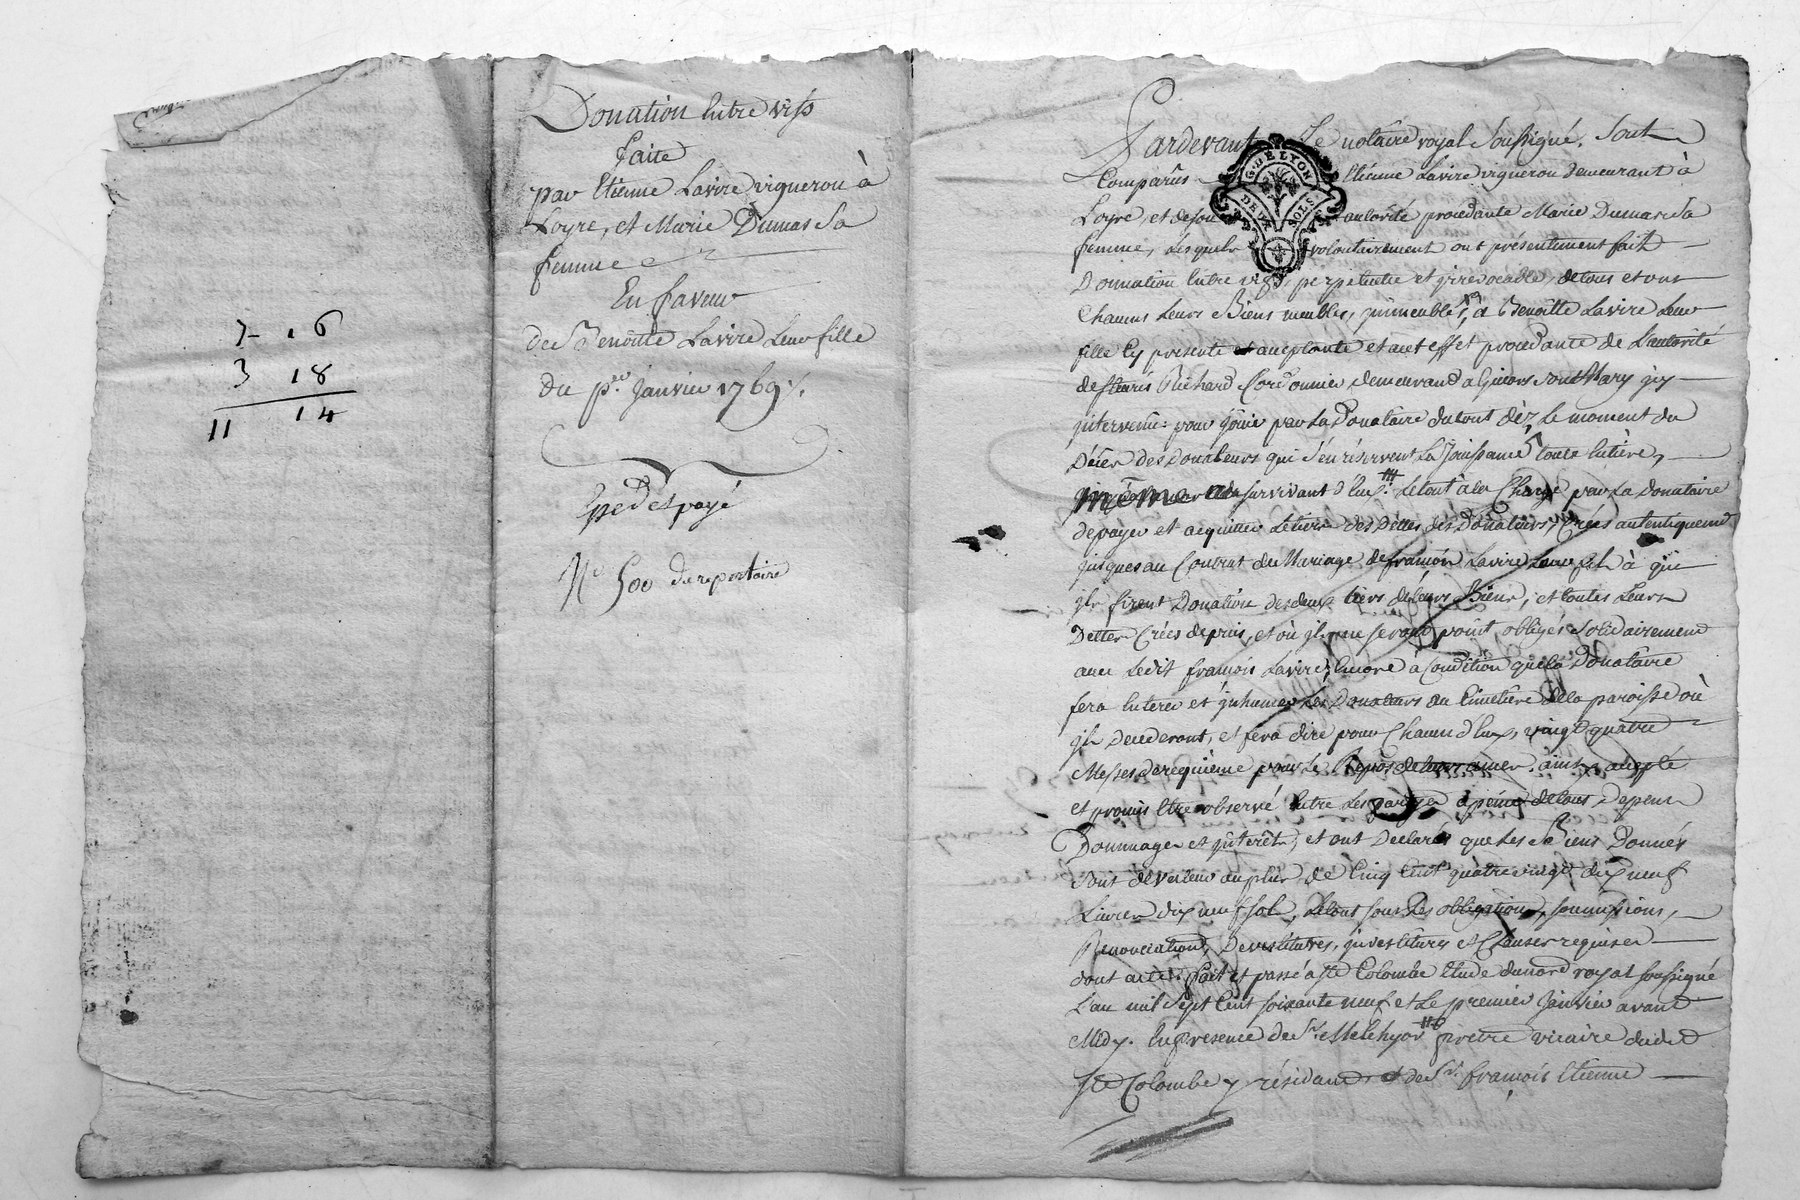 7 . 16
3 18
11 14
Donation Entre vifs
faite
par Etienne Lavire vigneron à
Loyre, et Marie Dumas Sa
femme
En faveur
de Benoitte Lavire Leur fille
du p.er Janvier 1769.
Exped et payé
N.º 500 du repertoire
Pardevant Le notaire royal Soussigné. Sont
G. DE LYON
DEUX SOLS
Comparûs Etienne Lavire vigneron demeurant à
Loyre, et de son autorité procedante Marie Dumas Sa
femme, Lesquels volontairement ont présentement fait
Donnation Entre vifs, perpetuelle et irrevocable, de tous et uns
Chacuns Leurs Biens meubles, immeubles, à Benoitte Lavire Leur
fille Cy presente et acceptante et a cet effet procedante de L'autorité
de Richard Cordonnier demeurand a Givors Son Mary icy
intervenu: pour joüir par La Donataire du tout dèz Le moment du
Décèz des Donateurs qui S'en réservent La Joüissance toute Entière,
même au survivant d'Eux. Le tout à la Charge par La Donataire
de payer et acquitter Le tiers des Dettes des Donateurs, Créés autentiquement
jusques au Contrat de Mariage de françois Lavire Leur fils à qui
ils firent Donation des deux tiers de Leurs Biens, et toutes Leurs
Dettes Créés depuis, et où ils ne seront point obligés Solidairement
avec Ledit françois Lavire; Encore à Condition que la Donataire
fera Enterer et inhumer Les Donateurs au Cimetière de la paroisse où
ils Decederont, et fera dire pour Chacun d'Eux, vingt quatre
Messes de requième pour Le Repos de Leurs ames. ainsi accepté
et promis Etre observé Entre Les parties à peine de tous Depens
Dommages et interêts; et ont Declarés que Les Biens Donnés
Sont de valeur au plus de Cinq Cent quatre vingt dix neuf
Livres dix neuf sols, Le tout sous Les obligations, soumissions,
Renonciations, Devestitures, investitures et Clauses requises
dont acte: fait et passé à Ste Colombe Etude du no.re royal soussigné
L'an mil Sept Cent soixante neuf et Le premier Janvier avant
Midy. En presence de S.r Melchyor prêtre vicaire dudit
Ste Colombe y résidant et de S.r françois Etienne